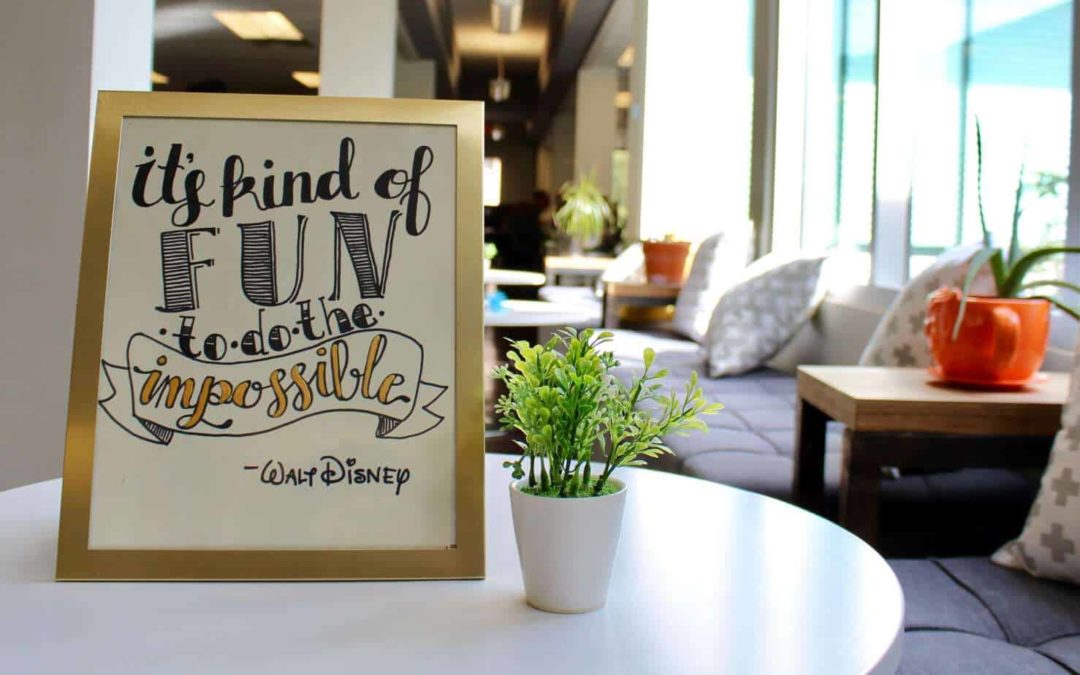 it's kind of
FUN
•to•do•the•
impossible
-WALT DISNEY